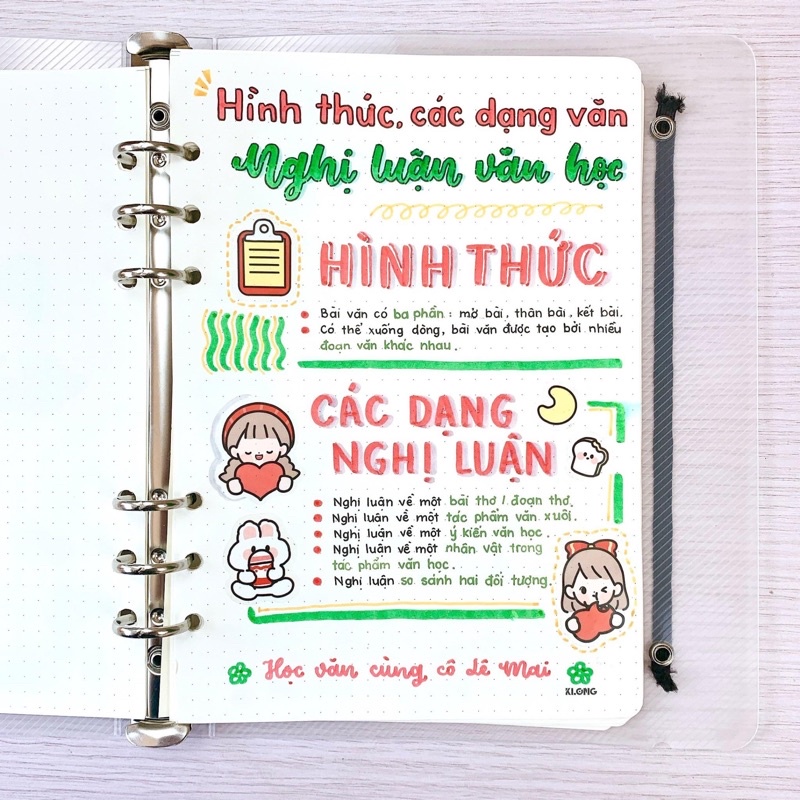 Hình thức, các dạng văn
Nghị luận văn học
HÌNH THỨC
Bài văn có ba phần: mở bài, thân bài, kết bài.
Có thể xuống dòng, bài văn được tạo bởi nhiều
đoạn văn khác nhau.
CÁC DẠNG
NGHỊ LUẬN
Nghị luận về một bài thơ / đoạn thơ.
Nghị luận về một tác phẩm văn xuôi.
Nghị luận về một ý kiến văn học.
Nghị luận về một nhân vật trong
tác phẩm văn học.
Nghị luận so sánh hai đối tượng.
Học văn cùng cô Lê Mai
KLONG